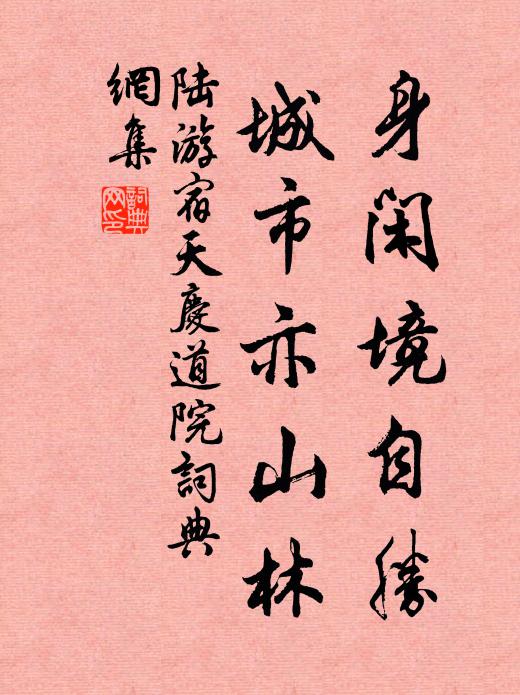 身閑境自勝
城市亦山林
陆游宿天慶道院詞典
網集
詞典
网印